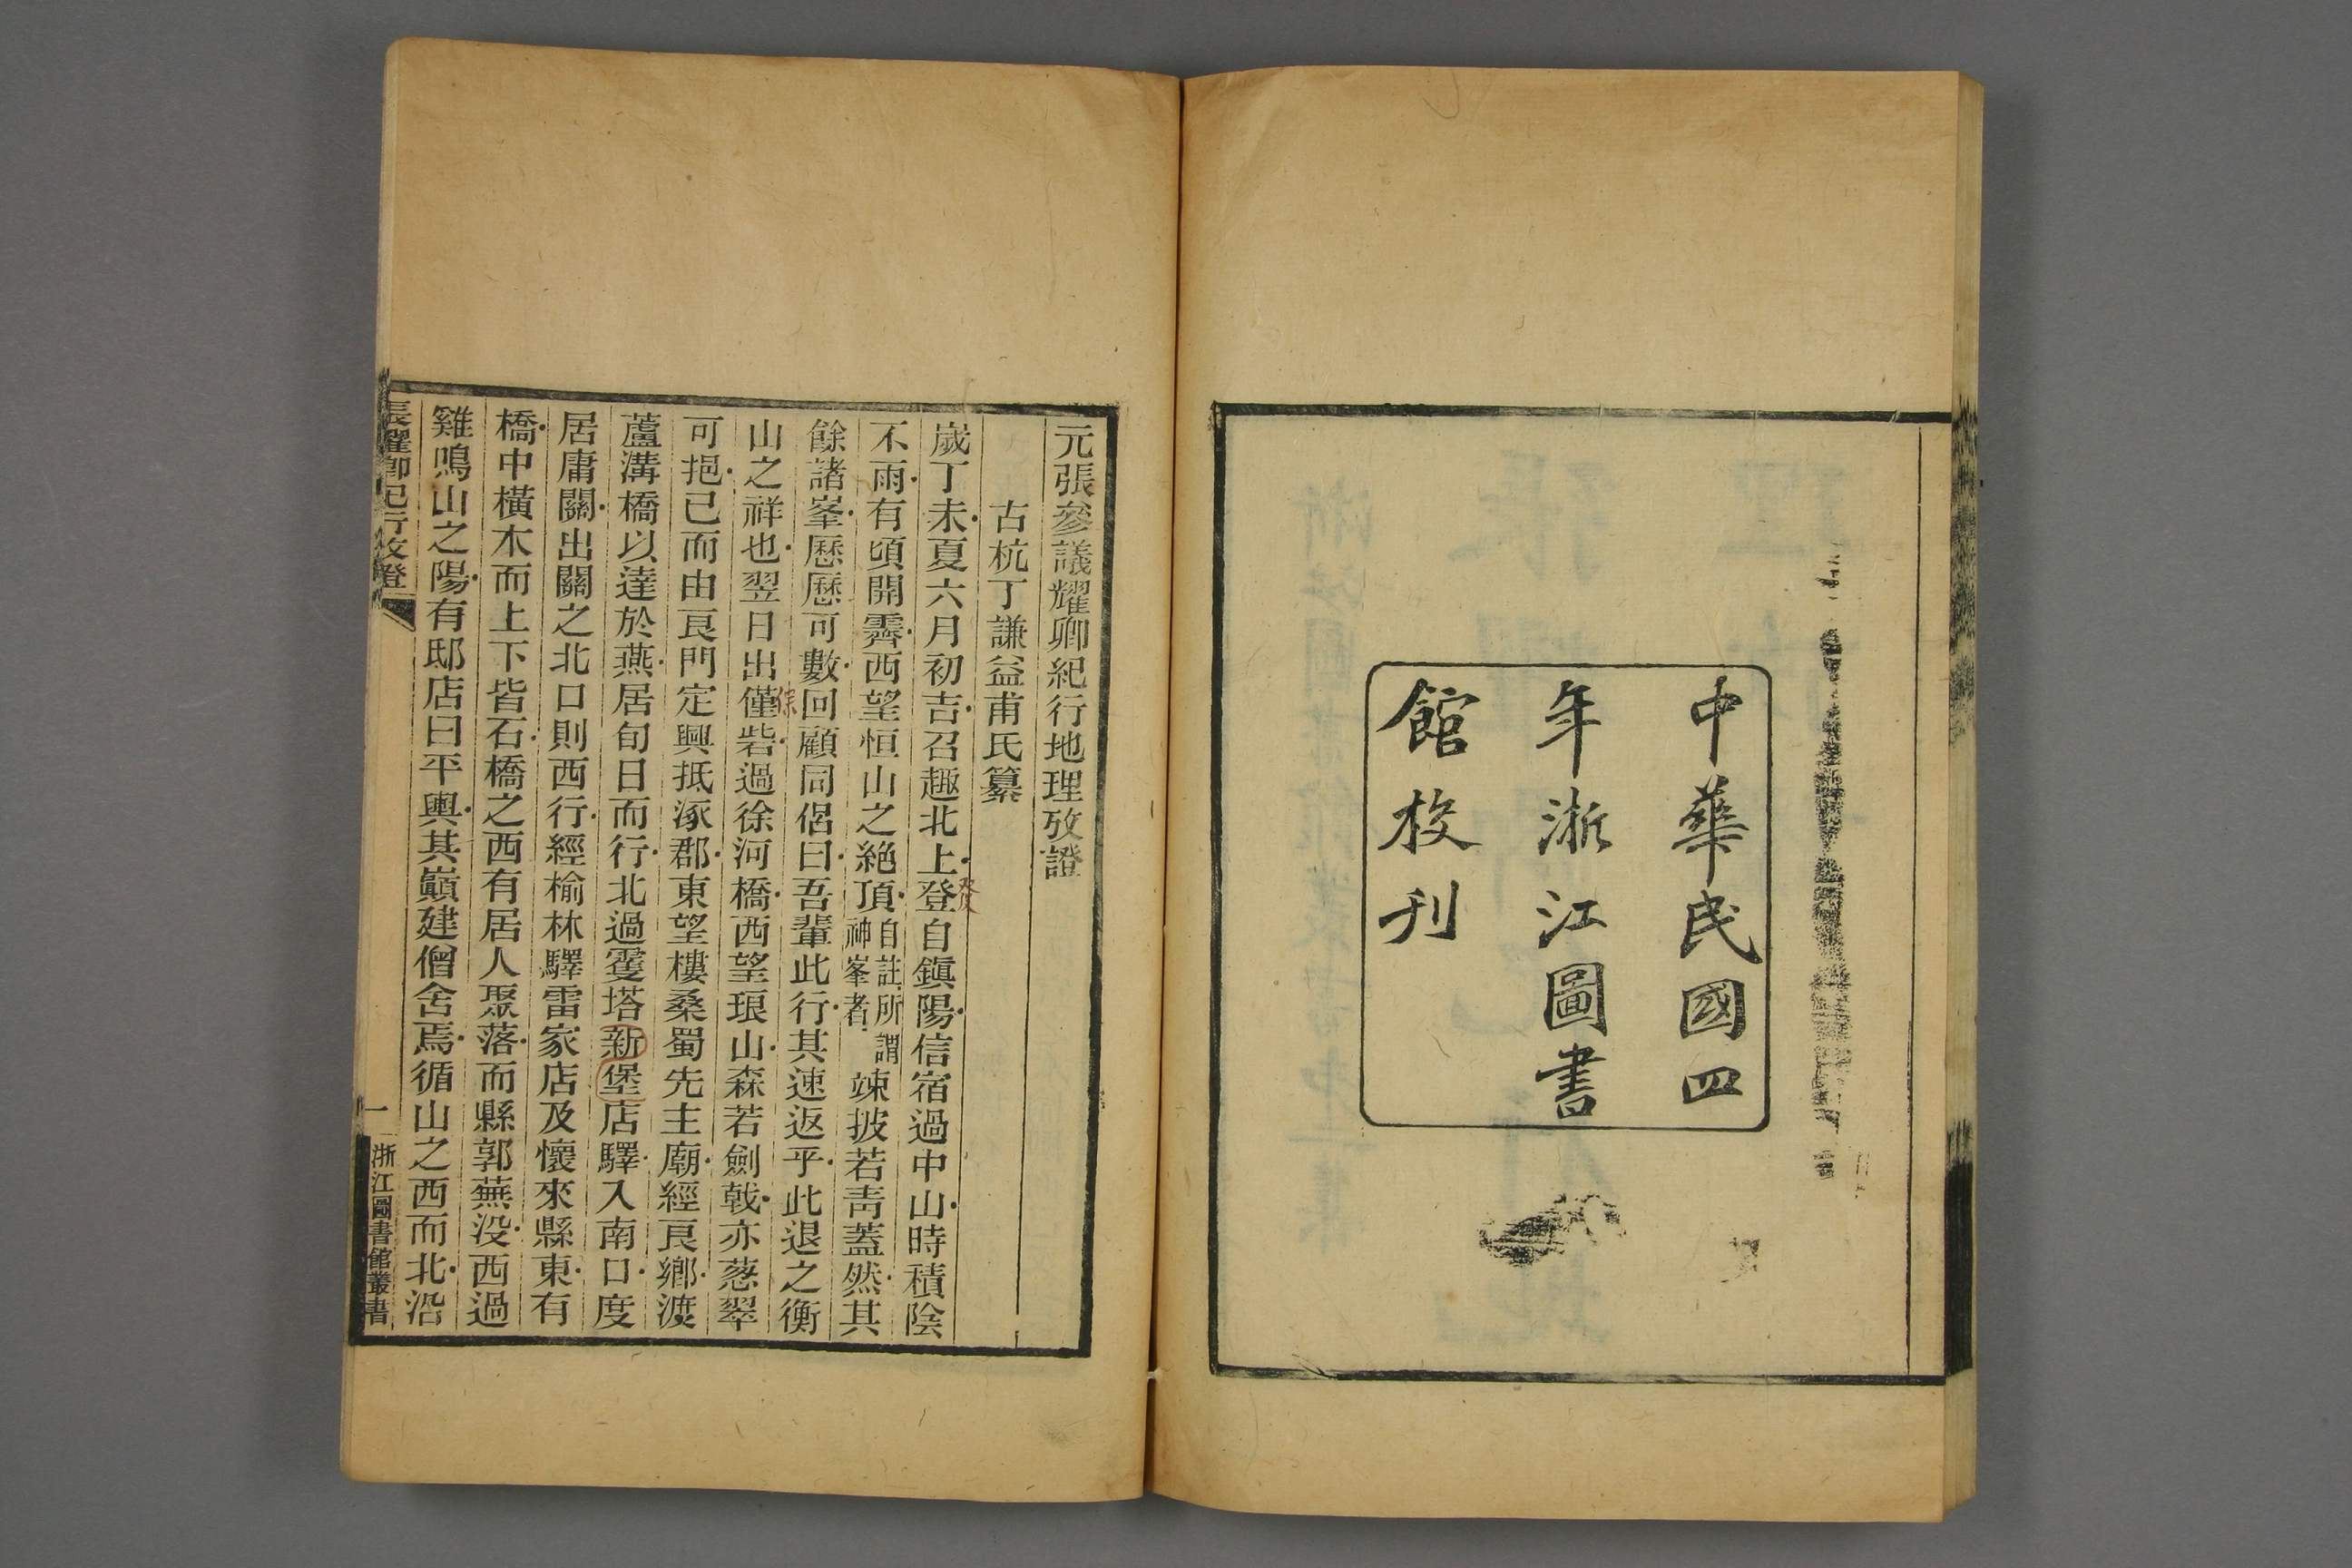 中華民國四
年浙江圖書
館校刊
元張參議耀卿紀行地理攷證
古杭丁謙益甫氏纂
歲丁未夏六月初吉召趣北上登自鎮陽信宿過中山時積陰
發
不雨有頃開霽西望恒山之絶頂自註所謂神峯者竦披若靑蓋然其
餘諸峯歷歷可數回顧同侶曰吾輩此行其速返乎此退之衡
山之祥也翌日出僅砦過徐河橋西望琅山森若劍戟亦蔥翠
保
可挹已而由良門定興抵涿郡東望樓桑蜀先主廟經良鄉渡
蘆溝橋以達於燕居旬日而行北過雙塔新堡店驛入南口度
居庸關出關之北口則西行經榆林驛雷家店及懷來縣東有
橋中橫木而上下皆石橋之西有居人聚落而縣郭蕪没西過
雞鳴山之陽有邸店曰平輿其巔建僧舍焉循山之西而北沿
張耀卿紀行攷證
一
浙江圖書館叢書